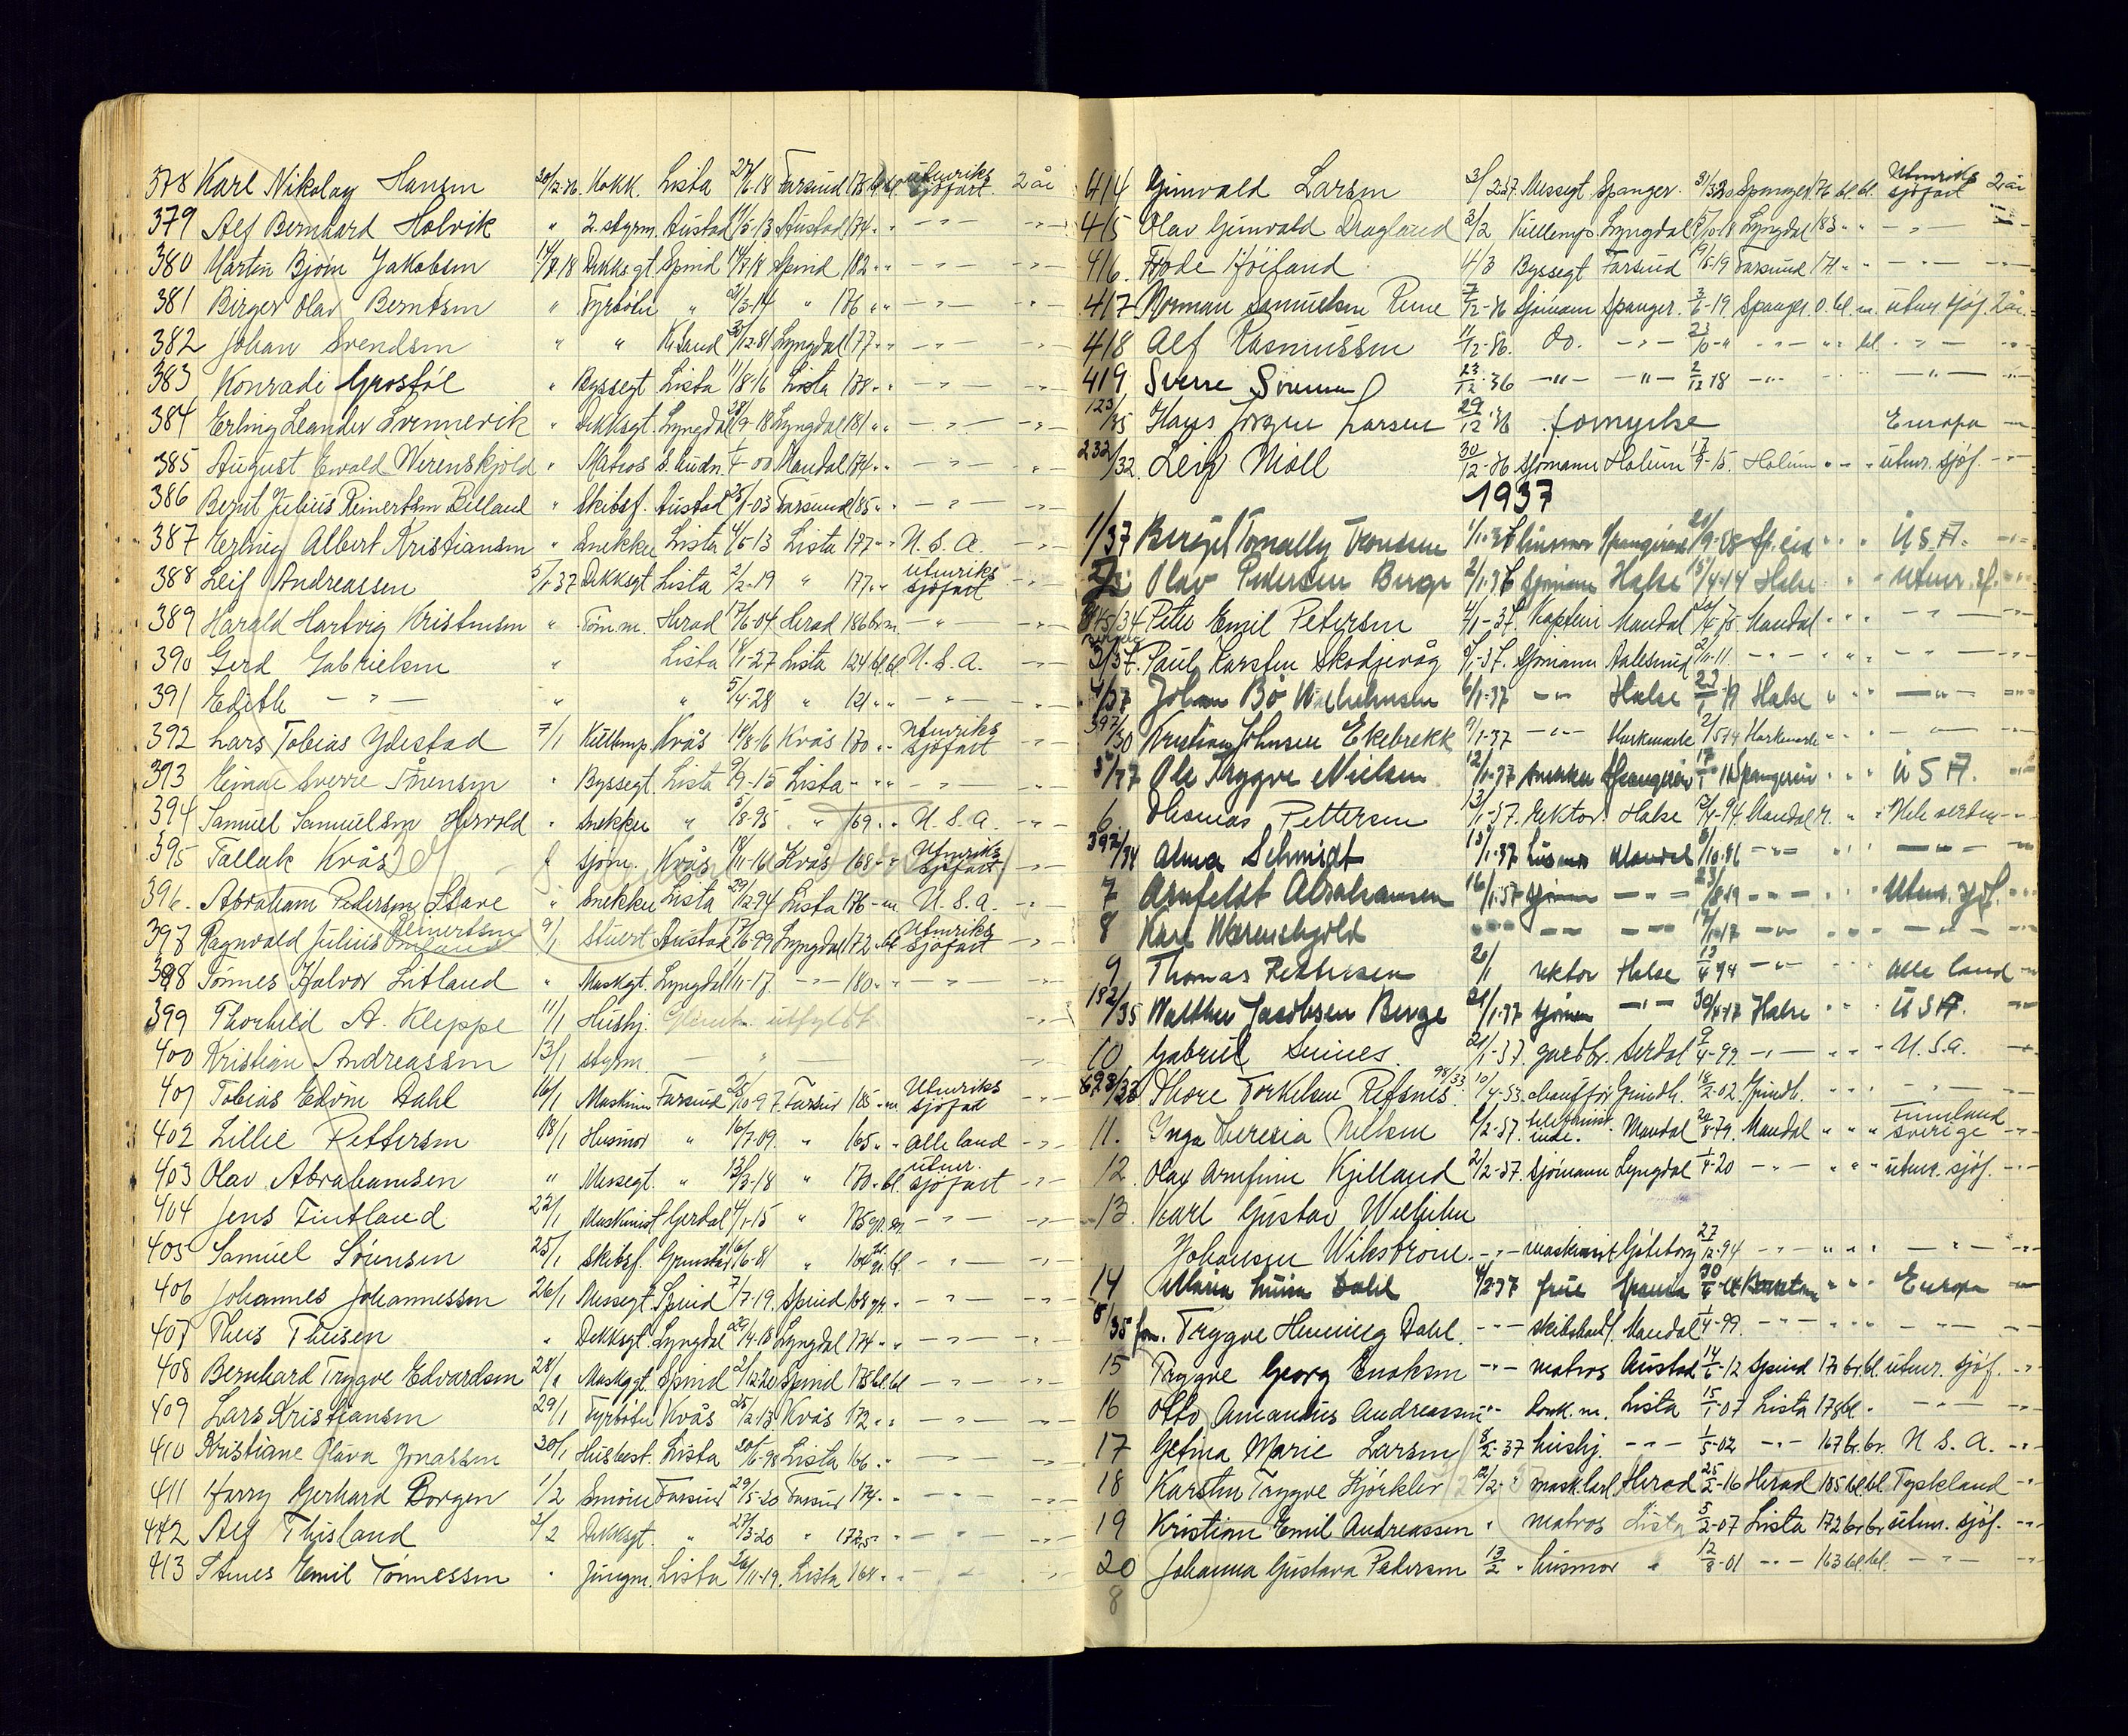 378 Karl Nikolay Hansen 30/12-36. Kokk. Lista 27/6-18 Farsund 178 bl. bl. utenriks sjøfart. 2 år
379 Alf Bernhard Holvik " 2. styrm. Austad 11/5-13 Austad 174 " " - " - - " -
380 Martin Bjørn Jakobsen Dekksgt. Spind 14/7-18 Spind 182 " " - " - - " -
381 Birger Olav Berntsen " Fyrbøter " 21/3-14 " 176 " " - " - - " -
382 Johan Svendsen " " Kr.sand 30/12-81 Lyngdal 177 " " - " - - " -
383 Konradi Grostøl " Byssegt. Lista 11/8-16 Lista 178 " " - " - - " -
384 Erling Leander Svennevik " Dekksgt. Lyngdal 28/9-18 Lyngdal 181 " " - " - - " -
385 August Ewald Werenskjold " Matros S. Audn. 1/4-00 Mandal 174 " " - " - - " -
386 Bernt Julius Reinertsen Billand " Skibsf. Austad 25/1-03 Farsund 185 " " - " - - " -
387 Erling Albert Kristiansen " Snekker Lista 4/5-13 Lista 177 " " U.S.A. - " -
388 Leif Andreassen 5/1 37 Dekksgt Lista 2/2-19 " 177 " " utenriks sjøfart - " -
389 Harald Hartvig Kristensen " Tøm.m. Herad 17/6-04 Herad 186 br. m. - " - - " -
390 Gerd Gabrielsen " Lista 18/1-27 Lista 124 bl. bl. U.S.A. - " -
391 Edith - " - " " 5/4-28 " 121 " " - " - - " -
392 Lars Tobias Ydestad 7/1 Kullemp. Kvås 10/8-16 Kvås 170 " " utenriks sjøfart - " -
393 Einar Sverre Tønesen " Byssegt. Lista 9/9-15 Lista " " " - " - - " -
394 Samuel Samuelsen Hervold " Snekker " 5/8-95 " 169 " " U.S.A. - " -
395 Tallak Kvås sjøm. Kvås 18/11-16 Kvås 168 " " utenriks sjøfart - " -
396. Abraham Pedersen Stave " Snekker Lista 29/12-94 Lista 176 - m. U.S.A. - " -
397 Ragnvald Julius Reinertsen 9/1 Stuert Austad 17/6-99 Lyngdal 172 " bl utenriks sjøfart - " -
398 Tønnes Halvor Litland " Maskgt. Lyngdal 1/11-17 - " - 180 " " - " - - " -
399 Thorhild A. Kleppe 11/1 Hushj. utfyldt - " -
400 Kristian Andreassen 13/1 styrm. - " - - " -
401 Tobias Edvin Dahl 16/1 Maskin. Farsund 25/10-97. Farsun 185 " m. Utenriks sjøfart - " -
402 Lillie Pettersen 18/1 Husmor " 16/7-09. " 165 " " alle land - " -
403 Olav Abrahamsen " Messegt. " 13/3-18 " 170 " bl. utenr. sjøfart - " -
404 Jens Fintland 22/1 Maskinist Gerdal 4/1-15 " 175 gr. m - " - - " -
405 Samuel Sørensen 25/1 Skibsf. Grimstad 16/6-81 " 164 gr. bl. - " - - " -
406 Johannes Johannessen 26/1 Messegt Spind 7/7-19. Spind 168 gr. " - " - - " -
407 Theis Theisen " Dekksgt. Lyngdal 29/4-18 Lyngdal 174 " " - " - - " -
408 Bernhard Trygve Edvardsen 28/1 Maskgt. Spind 2/12-20 Spind 178 bl. bl - " - - " -
409 Lars Kristiansen 29/1 Fyrbøter Kvås 25/12-13 Kvås 172 " " - " - - " -
410 Kristiane Olava Jonassen 30/1 Husbest. Lista 20/6-98 Lista 166 " " - " - - " -
411 Harry Gerhard Borgen 1/2 Farsund 29/5-20 Farsun 174 " " - " - - " -
412 Alf Thisland 2/2 Dekksgt. " 27/3-20 " 172,5 " " - " - - " -
413 Emil Tønnessen " Jungm. Lista 26/11-19. Lista 164 " " - " - - " -
414 Gunvald Larsen 3/2 37. Messegt Spanger. Spanger 176 bl. bl. Utenriks sjøfart 2 år
415 Olav Gunvald Dragland 3/2 Kullemp. Lyngdal 5/10-18 Lyngdal 183 " " - " -
416. Frode Høiland 4/3 Byssegt Farsund Farsund 171 " - " - - " -
417 Norman Samuelsen Rene 7/12-36 Sjømann Spanger. 3/6-19 Spanger. 0. bl. m. utenr. sjøf. 2 år.
418 Alf Rasmussen 11/12-36. do. - " - - " - " " bl. - " - - " -
419 Sverre Sørensen 23/12-36 - " - - " - 2/12 18 - " - - " -
123/35 Hans Jørgen Larsen 29/12-36 fornyelse Europa - " -
232/32 Leif Moll 30/12-36 Sjømann Holum 17/9-15. Holum " " " utenr. sjøf. - " -
1937
1/37 Bergit Tomally Tronsen 1/1-37 husmor Spangereid 21/9-08 Sp.eid " " " U.S.A. - " -
2/37 Olav Pedersen Berge 2/1-37 Sjømann Halse 15/4-14 Halse " " utenr. sf. - " -
845/34 Peter Emil Petersen 4/1-37. Kaptein Mandal Mandal " " " - " - - " -
3/37. Paul Karsten Skodjevåg 5/1-37. Sjømann Aalesund 2/11-11. - " - " " " - " - - " -
4/37 Johan Bö Wilhelmsen 6/1-37 - " - Halse Halse " " " - " - - " -
397/30 Kristian Johnsen Ekebrekk 9/1-37 - " - Harkmark 2/5-14 Harkmark " " - " - - " -
5/37 Ole Trygve Nielsen 12/1-37 snekker Spangereid Spangereid " " " U S A. - " -
6. Thomas Pettersen 13/1-37. rektor Halse 13/4-94 Mandal " " Hele verden - " -
392/34 Alma Schmidt 15/1-37 husmor Mandal 8/10-86 - " - " " " - " - - " -
7 Arnfeldt Abrahamsen 16/1-37 sjømann - " - 23/8-19 - " - " " " Utenr. sjøf. - " -
8 Karl Werenskjold - " - - " - - " - 19/1-17 - " - " " " - " - - " -
9 Thomas Pettersen 20/1 rektor Halse 13/4 94 - " - alle land - " -
182/35 Walther Jacobsen Berge 21/1-37 sjømann - " - 30/4-17 Halse " " " U S A. - " -
10. Gabriel Suines. 21/1-37. gardbr. Serdal 9/4-99 - " - " " " U.S.A. - " -
Thore Torkelsen Refsnes. 98/33 10/4-33. chauffør Grindh. 18/2-02. Grindh. " " " - " - - " -
11. Inga Theresia Nielsen 2/2-37. telefonistinde. Mandal 20/8-79. Mandal " " " Finnland Sverige - " -
12. Olav Arnfinn Kjelland 2/2-37. sjømann Lyngdal 1/4-20 - " - " " " utenr. sjøf. - " -
13. Karl Gustav Wilhelm
Johansen Wikström. - " - maskinist Göteborg 27/12-94 - " - " " " - " - - " -
14 Maria Luisa Dahl 4/2-37 frue Spania " " Europa - " -
8/35 forn. Trygve Henning Dahl. - " - skibshandl. Mandal 1/4-99. - " - " " " - " - - " -
15 Trygve Georg Enoksen - " - matros Austad 14/6-12 Spind 170 br. bl. utenr. sjøf. - " -
16 Otto Amandus Andreassen - " - Donk.m. Lista 15/1-07 Lista 178 bl. " - " - - " -
17 Getina Marie Larsen 8/2-37 hushj. - " - 1/5-02 - " - 167 br. br. U.S.A. - " -
18 Karsten Trygve Hjorklev 12/2- " mask.karl Herad 25/2-16 Herad 185 bl. bl. Tyskland - " -
19 Kristian Emil Andreassen " matros Lista 5/2-07 Lista 172 br br utenr. sjøf. - " -
20 Johanna Gustava Pedersen 13/2 " husmor " 12/8-01 - " - 163 bl. bl. - " - - " -
8